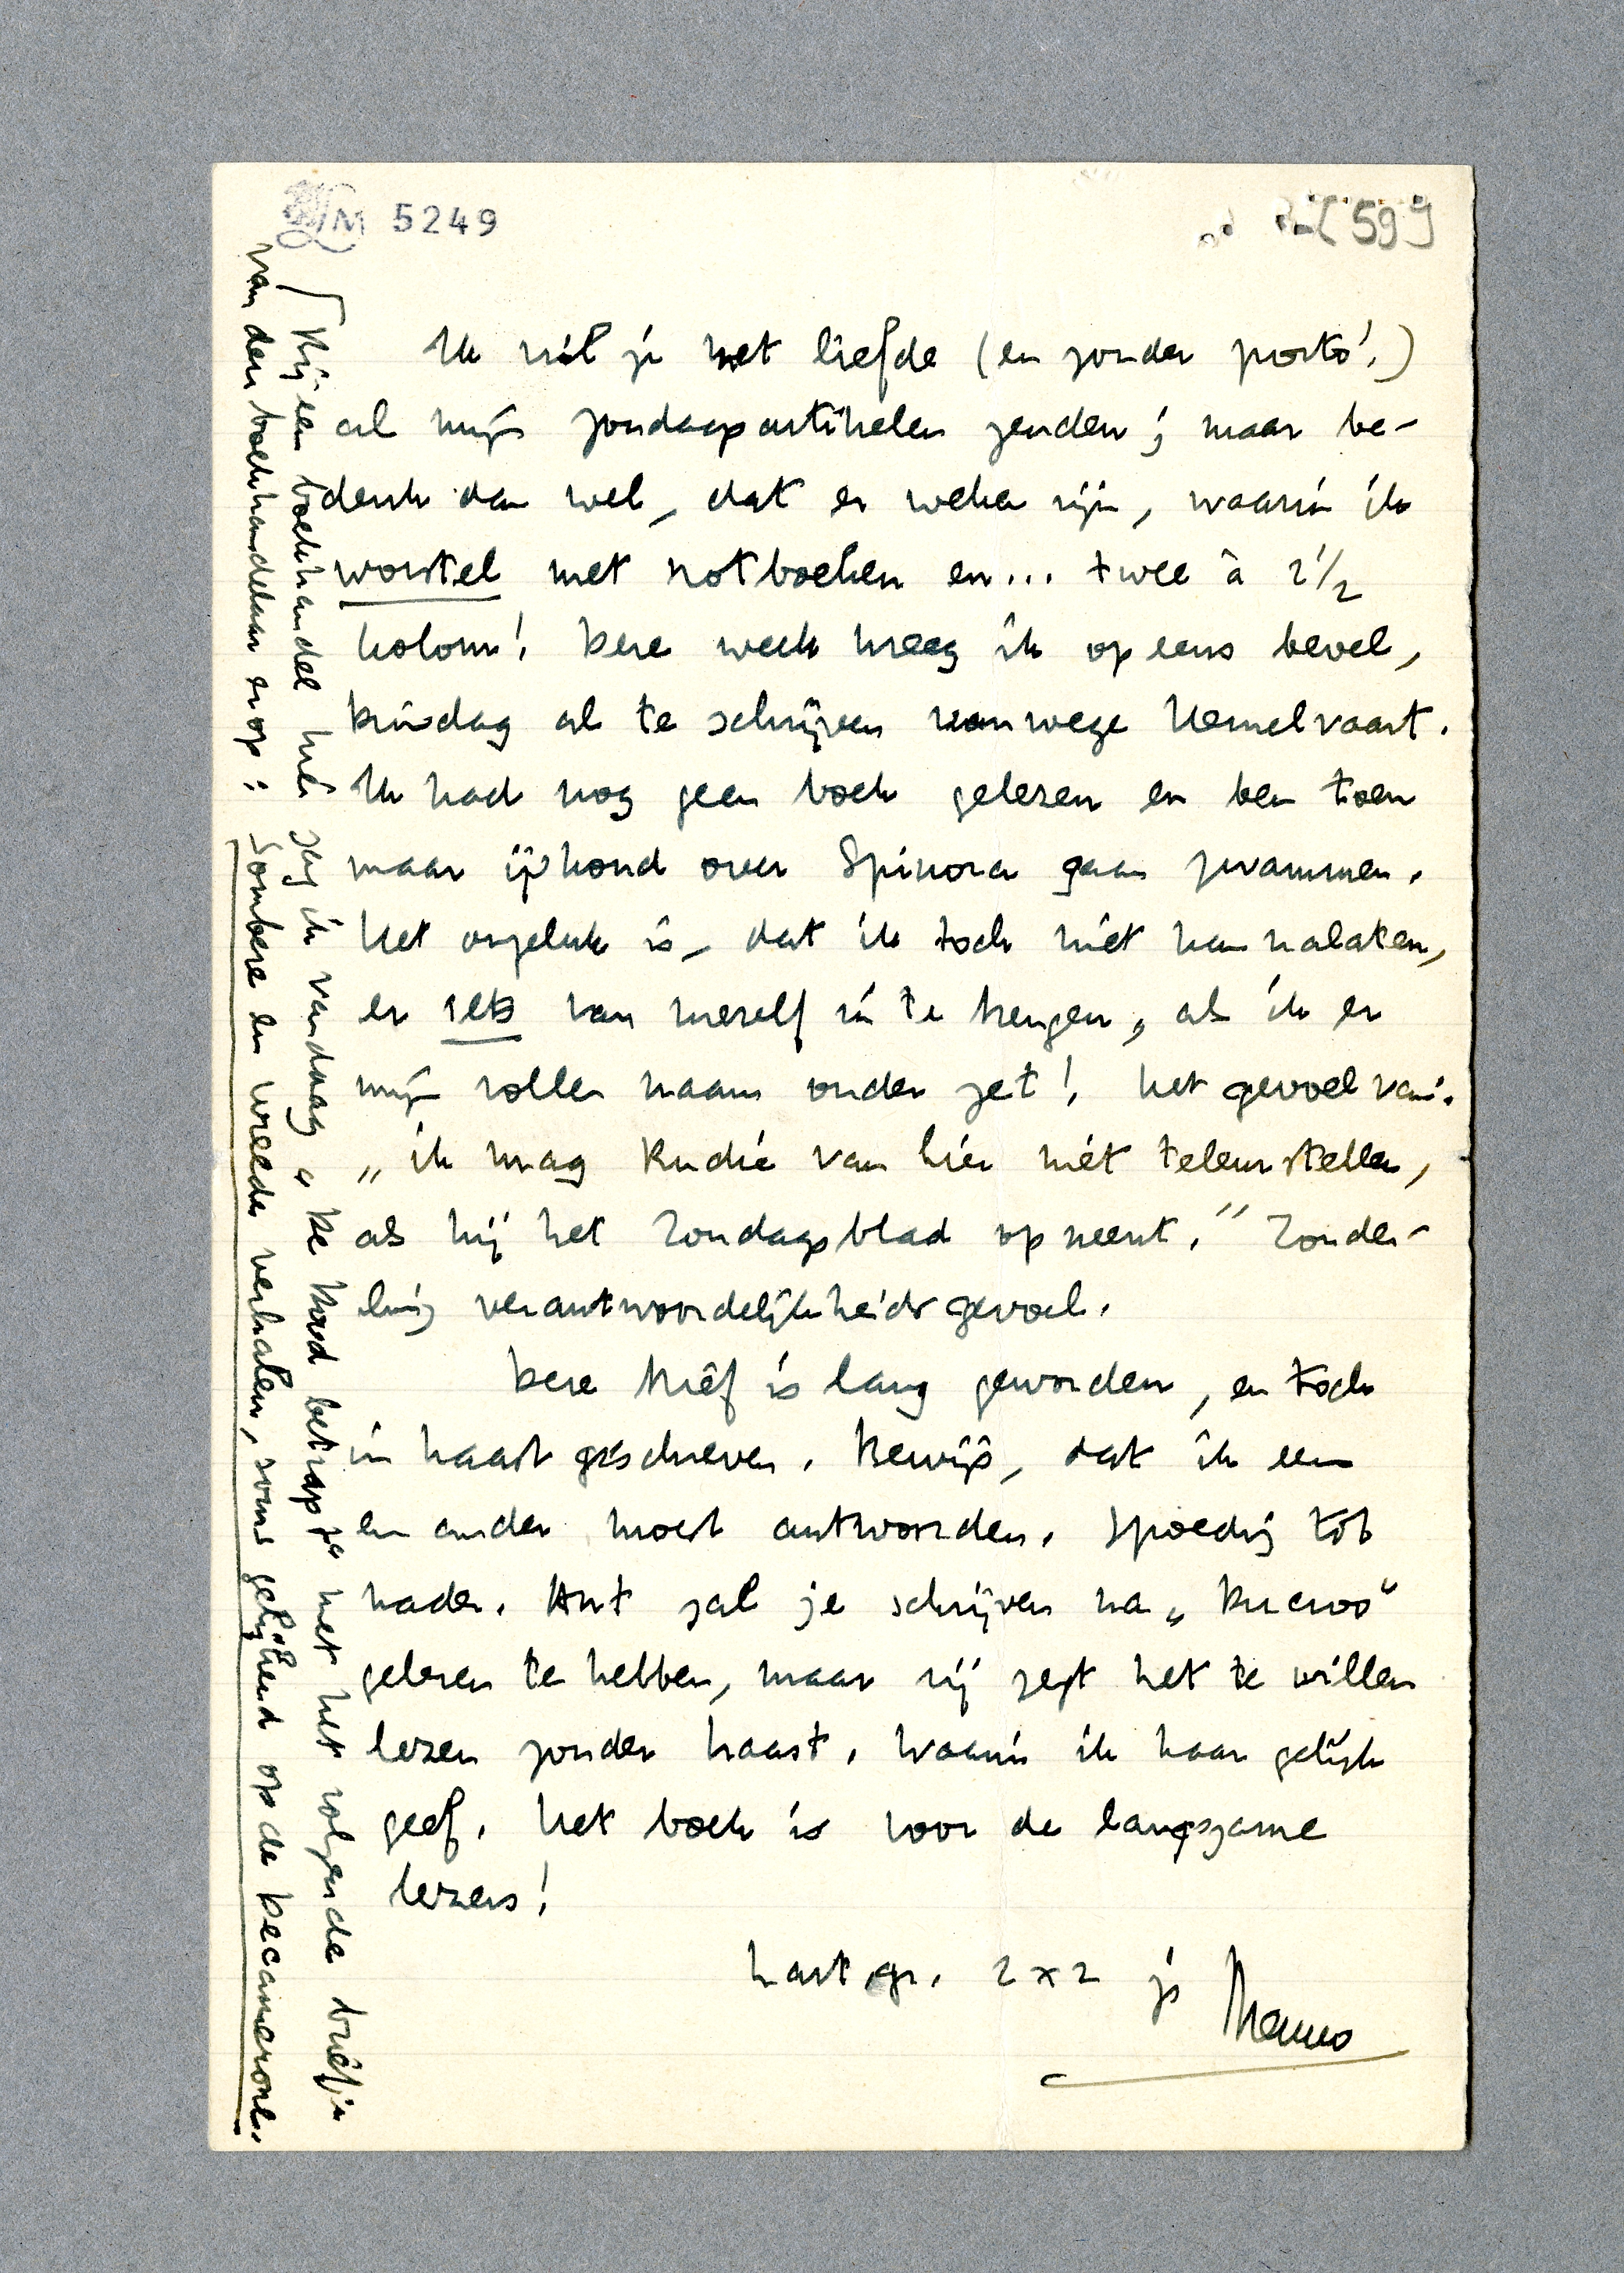 LM 5249
599
Ik wil je met liefde (en zonder porto!)
al mijn zondagsartikelen zenden; maar be-
denk dan wel, dat er weken zijn, waarin ik
worstel met rotboeken en... twee à 2½
kolom! Deze week kreeg ik opeens bevel,
Dinsdag al te schrijven vanwege Hemelvaart.
Ik had nog geen boek gelezen en ben toen
maar ijskoud over Spinoza gaan zwammen.
Het ongeluk is, dat ik toch niet kan nalaten,
er iets van mezelf in te brengen, als ik er
mijn vollen naam onder zet! Het gevoel van:
„ik mag Rudie van hier niet teleurstellen,
als hij het Zondagsblad opneemt.” Zonder-
ling verantwoordelijkheidsgevoel.
Deze brief is lang geworden, en toch
in haast geschreven. Bewijs, dat ik een
en ander moest antwoorden. Spoedig tot
nader. Ant zal je schrijven na „Ducroo”
gelezen te hebben, maar zij zegt het te willen
lezen zonder haast. Waarin ik haar gelijk
geef. Het boek is voor de langzame
lezers!
hart. gr. 2 x 2 je
Menno
Bij een boekhandel hier zag ik vandaag „De Dood betrapt” met het volgende briefje
van den boekhandelaar erop: Sombere en wreede verhalen, soms gelijkend op de Decamerone.